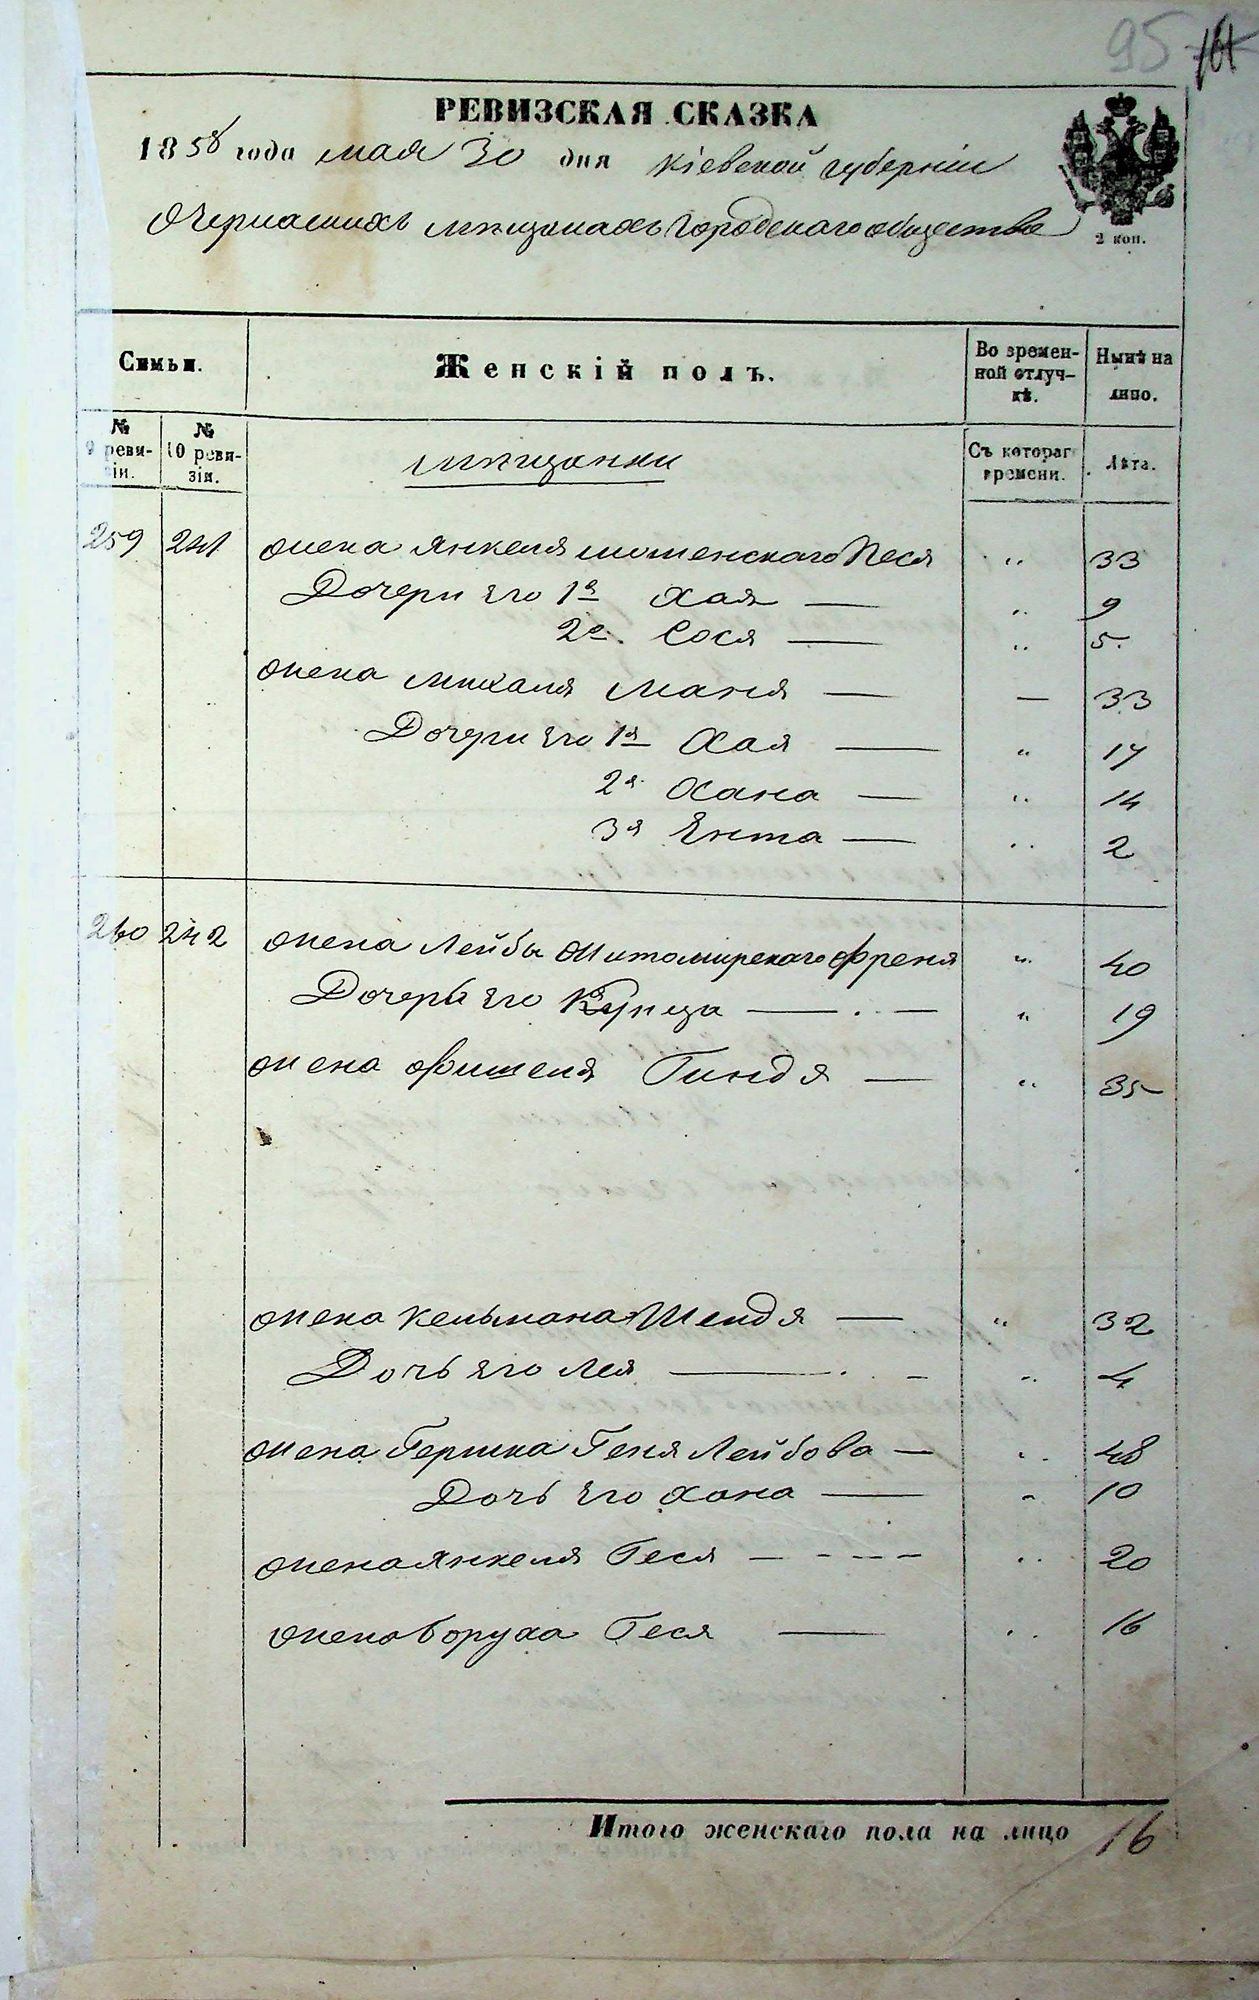 95 161
РЕВИЗСКАЯ СКАЗКА
1858 года мая 30 дня Кіевской губерніи
О Черкаскихъ мѣщанахъ Городскаго общества
2 коп.
Семьи. Женскій полъ. Во времен-ной отлуч-кѣ. Нынѣ на лицо.
№ 9 реви-зіи. № 10 реви-зіи. мѣщанки Съ котораго времени. Лѣта.
259 241 Жена Янкеля Мошенскаго Песя " 33
Дочери Его 1я Хая — " 9
2я Сося — " 5
Жена Михаля Маня — — 33
Дочери Его 1я Хая — " 17
2я Хана — " 14
3я Ента — " 2
260 242 Жена Лейбы Житомирскаго Френя " 40
Дочерь Его Купца — . — " 19
Жена Фишеля Гиндя — " 35
Жена Кельмана Шендя — " 32
Дочь Его Лея — . - " 4
Жена Гершка Геня Лейбова — " 48
Дочь Его Хана — " 10
Жена Янкеля Геся — - - - " 20
Жена Боруха Геся — " 16
Итого женскаго пола на лицо 16